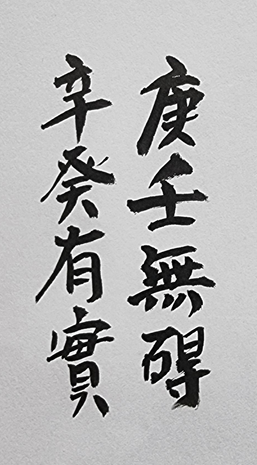 庚壬無碍
辛癸有實